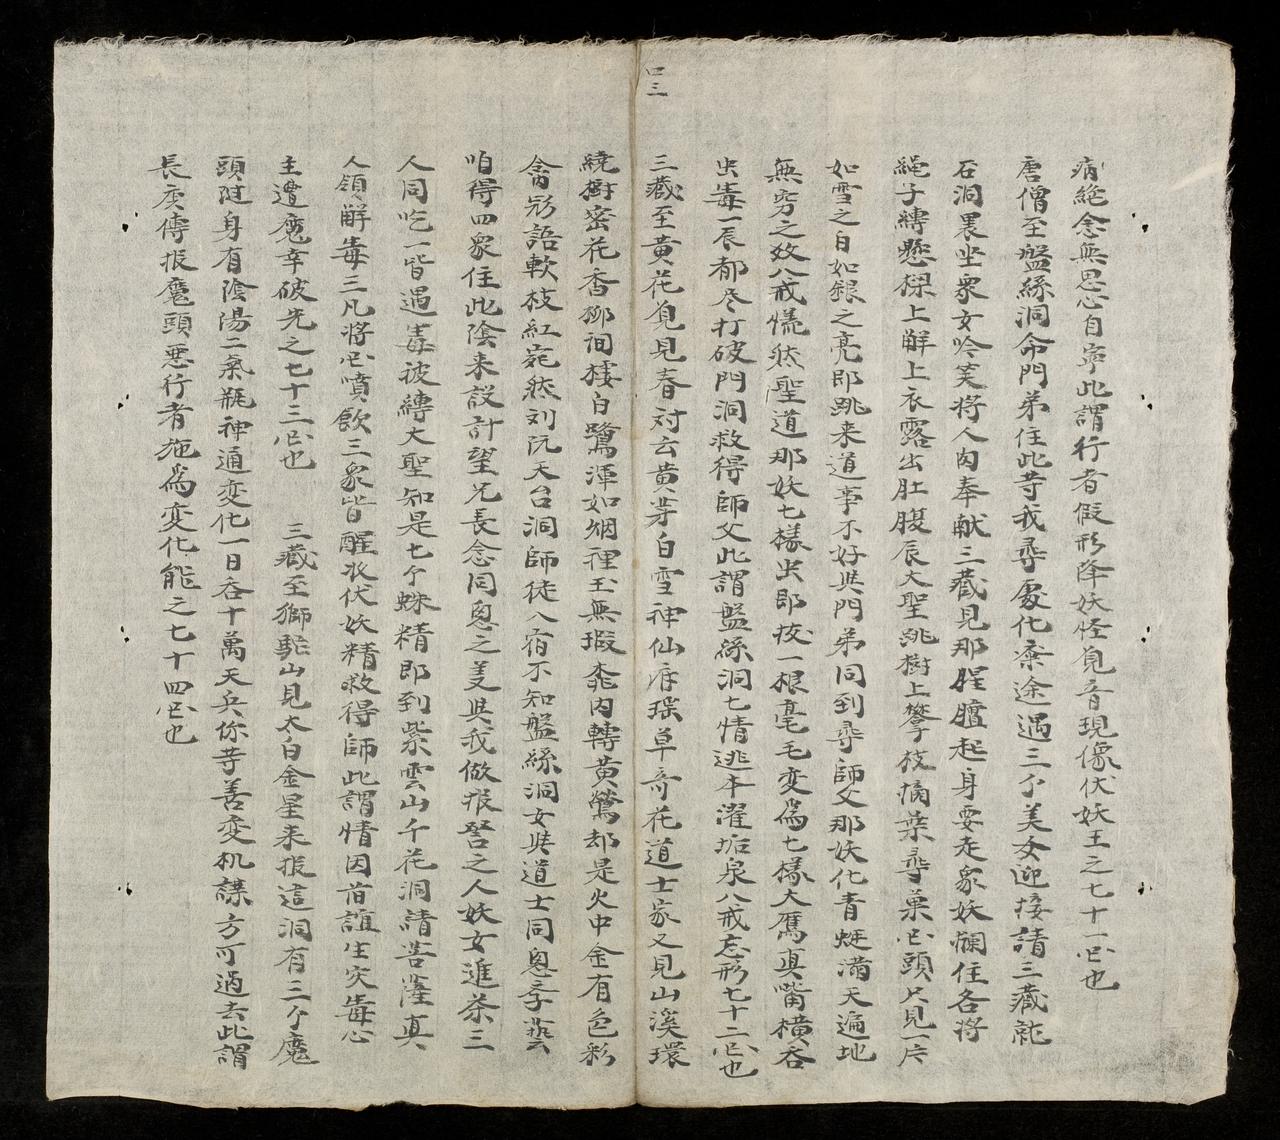 病絕念無思心自寧此謂行者假形降妖怪覔音現像伏妖王之七十一囬也
唐僧至盤絲洞命門弟住此等我尋覓化齋途遇三个美女迎接請三藏詑
石洞裏坐衆女吟笑將人肉奉献三藏見那腥膻起身要走衆妖攔住各將
繩子縛懸樑上解上衣露出肚腹辰大聖跳樹上攀枝摘葉尋菓囬頭只見一片
如雪之白如銀之亮即跳来道事不好與門弟同到尋師父那妖化青蜓滿天遍地
無窮之效八戒慌然聖道那妖七樣虫即拔一根毫毛变為七樣大鷹真嘴橫吞
虫毒一辰都尽打破門洞救得師父此謂盤絲洞七情逃本濯垢泉八戒忘形七十二囬也
四三
三藏至黃花覔見春对云黄芽白雪神仙府瑤草奇花道士家又見山溪環
繞樹密花香柳间棲白鷺渾如烟裡玉無瑕桃内轉黃鶯却是火中金有色彩
禽彩語軟枝紅宛然刘阮天台洞師徒入宿不知盤絲洞女與道士同恩孝藝
咱得四衆住此陰来設計望兄長念同恩之義與我做报答之人妖女進茶三
人同吃一皆遇毒被縛大聖知是七个蛛精即到紫雲山千花洞請菩薩真
人領解毒三凡將囬噴飲三衆皆醒收伏妖精救得師此謂情因舊誼生灾毒心
主遭魔幸破光之七十三囬也 三藏至獅駝山見太白金星来报這洞有三个魔
頭隨身有陰陽二氣瓶神通变化一日吞十萬天兵你等善变机謀方可過去此謂
長庚傳报魔頭悪行者施為变化能之七十四囬也